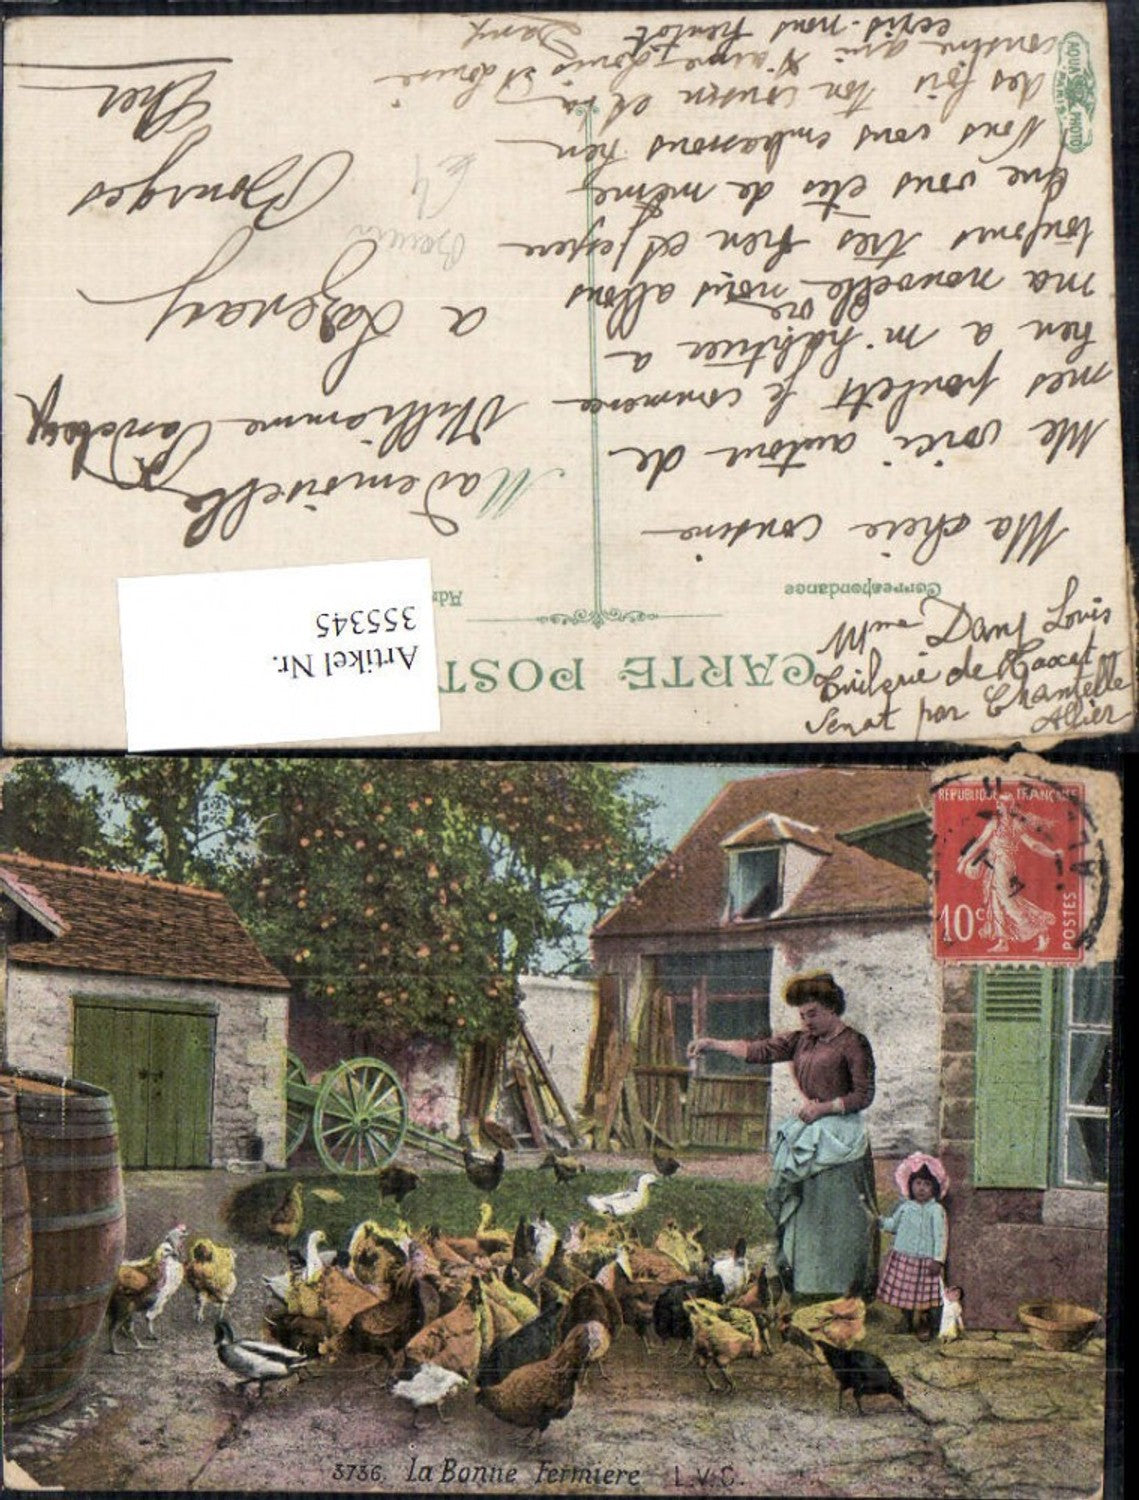 CARTE POST
Correspondance
Adr
Artikel Nr.
355345
AQUA PHOTO
PARIS
Mme Dany Louis
Tuilerie de
Senat par Chantelle
Allier
Ma chère cousine
Me voici autour de
mes poulets je commence
bien a m'habituer a
ma nouvelle vie nous allons
toujours très bien et j'espere
que vous etes de même
Nous vous embrassons bien
des fois ton cousin et ta
cousine qui t'aime Louis et Louise
ecris-nous bientot Dany
Mademoiselle
Williamme
a Lazenay
Bourges
Cher
REPUBLIQUE FRANÇAISE
10c
POSTES
3736. La Bonne Fermiere L.V.C.